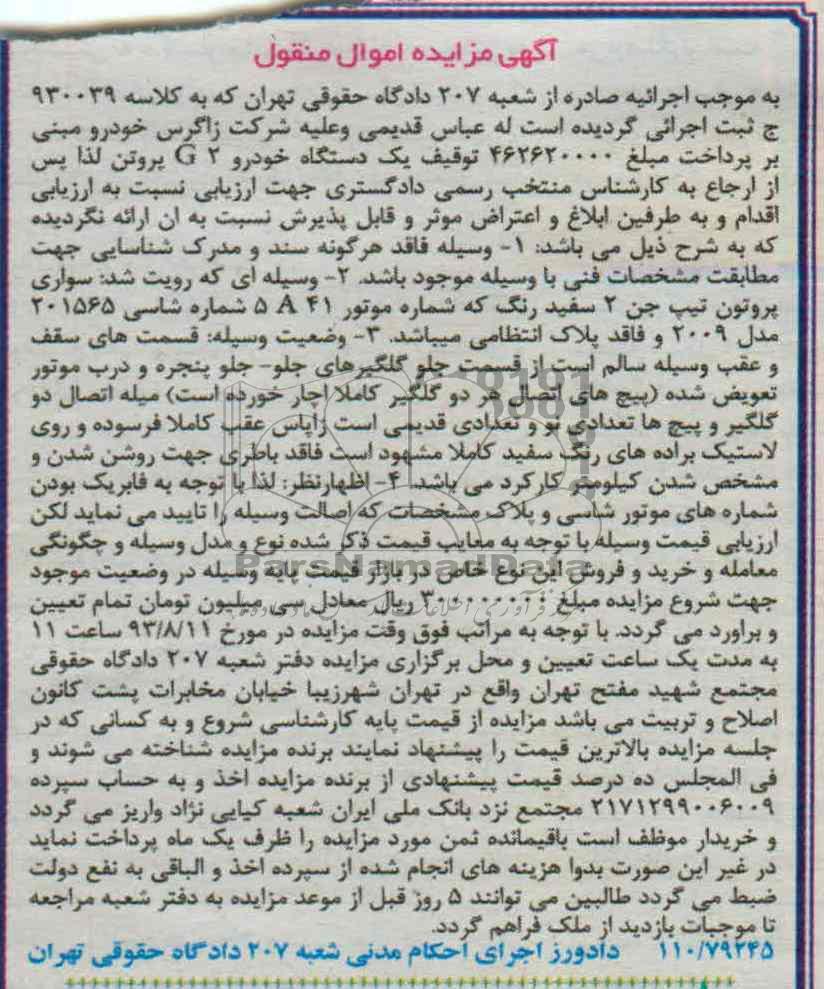 آگهی مزایده اموال منقول
به موجب اجرائیه صادره از شعبه ۲۰۷ دادگاه حقوقی تهران که به کلاسه ۹۳۰۰۳۹
ج ثبت اجرائی گردیده است له عباس قدیمی وعلیه شرکت زاگرس خودرو مبنی
بر پرداخت مبلغ ۴۶۲۶۲۰۰۰۰ توقیف یک دستگاه خودرو G ۲ پروتن لذا پس
از ارجاع به کارشناس منتخب رسمی دادگستری جهت ارزیابی نسبت به ارزیابی
اقدام و به طرفین ابلاغ و اعتراض موثر و قابل پذیرش نسبت به ان ارائه نگردیده
که به شرح ذیل می باشد: ۱- وسیله فاقد هرگونه سند و مدرک شناسایی جهت
مطابقت مشخصات فنی با وسیله موجود باشد. ۲- وسیله ای که رویت شد: سواری
پروتون تیپ جن ۲ سفید رنگ که شماره موتور ۴۱ A ۵ شماره شاسی ۲۰۱۵۶۵
مدل ۲۰۰۹ و فاقد پلاک انتظامی میباشد. ۳- وضعیت وسیله: قسمت های سقف
و عقب وسیله سالم است از قسمت جلو گلگیرهای جلو- جلو پنجره و درب موتور
تعویض شده (پیچ های اتصال هر دو گلگیر کاملا اچار خورده است) میله اتصال دو
گلگیر و پیچ ها تعدادی نو و تعدادی قدیمی است زاپاس عقب کاملا فرسوده و روی
لاستیک براده های رنگ سفید کاملا مشهود است فاقد باطری جهت روشن شدن و
مشخص شدن کیلومتر کارکرد می باشد. ۴- اظهارنظر: لذا با توجه به فابریک بودن
شماره های موتور شاسی و پلاک مشخصات که اصالت وسیله را تایید می نماید لکن
ارزیابی قیمت وسیله با توجه به معایب قیمت ذکر شده نوع و مدل وسیله و چگونگی
معامله و خرید و فروش این نوع خاص در بازار قیمت پایه وسیله در وضعیت موجود
جهت شروع مزایده مبلغ ۳۰۰۰۰۰۰۰۰ ریال معادل سی میلیون تومان تمام تعیین
و براورد می گردد. با توجه به مراتب فوق وقت مزایده در مورخ ۹۳/۸/۱۱ ساعت ۱۱
به مدت یک ساعت تعیین و محل برگزاری مزایده دفتر شعبه ۲۰۷ دادگاه حقوقی
مجتمع شهید مفتح تهران واقع در تهران شهرزیبا خیابان مخابرات پشت کانون
اصلاح و تربیت می باشد مزایده از قیمت پایه کارشناسی شروع و به کسانی که در
جلسه مزایده بالاترین قیمت را پیشنهاد نمایند برنده مزایده شناخته می شوند و
فی المجلس ده درصد قیمت پیشنهادی از برنده مزایده اخذ و به حساب سپرده
۲۱۷۱۲۹۹۰۰۶۰۰۹ مجتمع نزد بانک ملی ایران شعبه کیایی نژاد واریز می گردد
و خریدار موظف است باقیمانده ثمن مورد مزایده را ظرف یک ماه پرداخت نماید
در غیر این صورت بدوا هزینه های انجام شده از سپرده اخذ و الباقی به نفع دولت
ضبط می گردد طالبین می توانند ۵ روز قبل از موعد مزایده به دفتر شعبه مراجعه
تا موجبات بازدید از ملک فراهم گردد.
۱۱۰/۷۹۲۴۵ دادورز اجرای احکام مدنی شعبه ۲۰۷ دادگاه حقوقی تهران
ParsNamadData